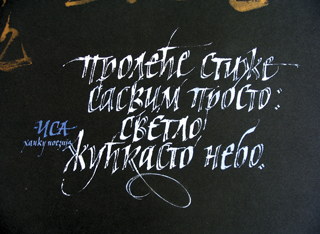 пролеће стиже
сасвим просто:
светло!
жућкасто небо.
ИСА
хаику поезија